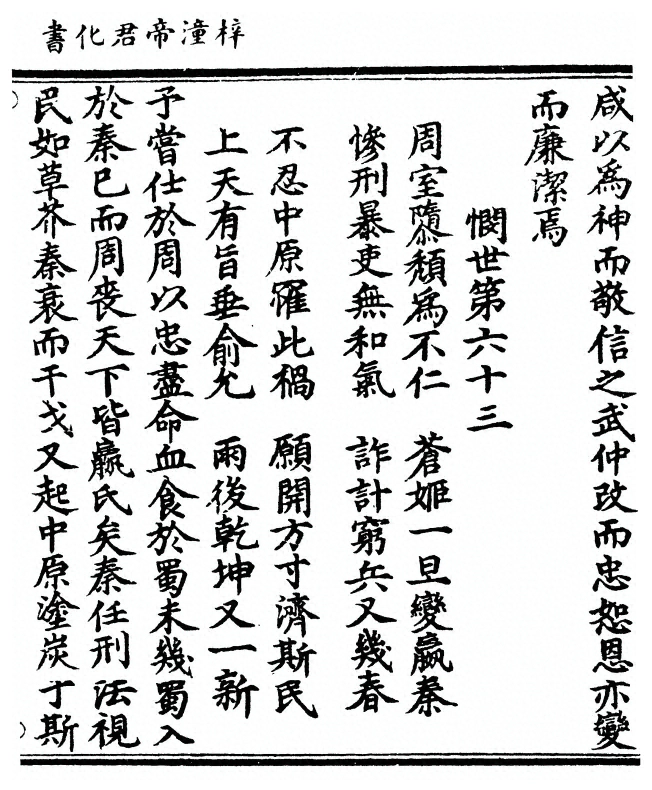 梓潼帝君化書
咸以為神而敬信之武仲改而忠恕恩亦變
而廉潔焉
憫世第六十三
周室隳頹為不仁 蒼姬一旦變嬴秦
慘刑暴吏無和氣 詐計窮兵又幾春
不忍中原罹此禍 願開方寸濟斯民
上天有旨垂俞允 雨後乾坤又一新
予嘗仕於周以忠盡命血食於蜀未幾蜀入
於秦巳而周喪天下皆嬴氏矣秦任刑法視
民如草芥秦衰而干戈又起中原塗炭于斯